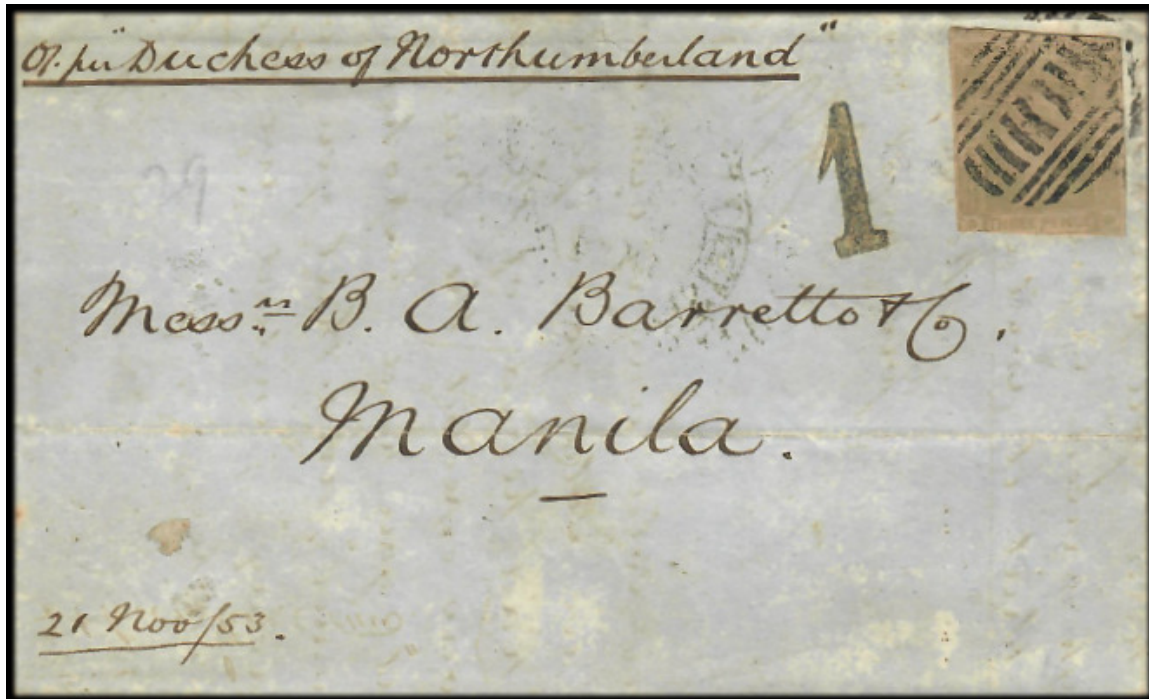 Or. per "Duchess of Northumberland"
1
Mess.rs B. A. Barretto & Co.
Manila.
21 Nov/53.